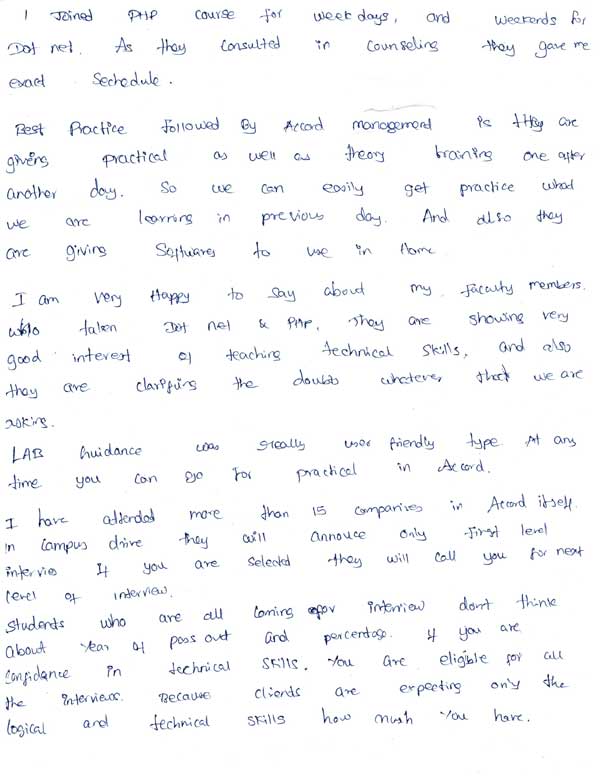 I Joined PHP course for weekdays, and weekends for
Dot net. As they consulted in Counseling they gave me
exact Sechedule.
Best Practice followed By Accord management is they are
giving practical as well as theory training one after
another day. So we can easily get practice what
we are learning in previous day. And also they
are giving Softwares to use in Home
I am very Happy to say about my faculty members.
who taken Dot net & PHP, They are showing very
good interest of teaching technical skills, and also
they are clarifing the doubts whatever, that we are
asking.
LAB Guidance was really user friendly type At any
time you can go for practical in Accord.
I have attended more than 15 companines in Accord itself.
In campus drive they will annouce only first level
intervie If you are selected they will call you for next
level of interview.
Students who are all coming for interview don't think
about Year of pass out and percentage. If you are
confidance in technical skills. You are eligible for all
the interviews. Because clients are expecting only the
logical and technical skills how mush You have.